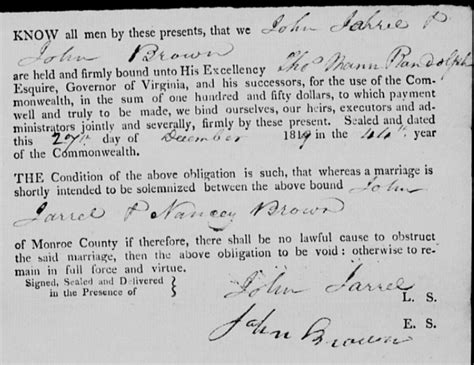 KNOW all men by these presents, that we John Jarrel &
John Brown
are held and firmly bound unto His Excellency Tho⁠s Mann Randolph
Esquire, Governor of Virginia, and his successors, for the use of the Com-
monwealth, in the sum of one hundred and fifty dollars, to which payment
well and truly to be made, we bind ourselves, our heirs, executors and ad-
ministrators jointly and severally, firmly by these present. Sealed and dated
this 27th day of December 1819 in the 44th year
of the Commonwealth.
THE Condition of the above obligation is such, that whereas a marriage is
shortly intended to be solemnized between the above bound John
Jarrel & Nancey Brown
of Monroe County if therefore, there shall be no lawful cause to obstruct
the said marriage, then the above obligation to be void: otherwise to re-
main in full force and virtue.
Signed, Sealed and Delivered
in the Presence of
John Jarrel
L. S.
John Brown
E. S.